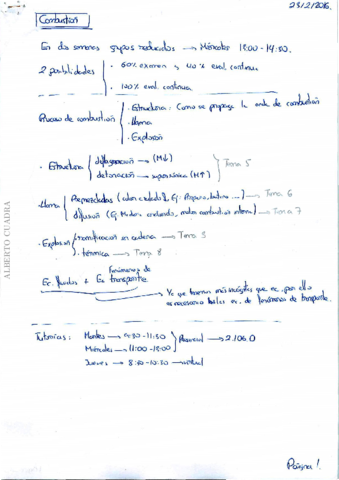 23/2/2016.
Combustión
En dos semanas grupos reducidos → Miércoles 11:00-14:30.
2 posibilidades
· 60% examen y 40% eval. continua.
· 100% eval. continua.
Proceso de combustión
· Estructura: Como se propaga la onda de combustión
· Llama
· Explosión
· Estructura
deflagración → (M↓)
detonación → supersónica (M↑)
Tema 5
· Llama
Premezcladas
Tema 6
difusión
Tema 7
· Explosión
ramificación en cadena → Tema 3
térmica → Tema 8
Ec. fluidos & Ec.
Fenómenos de
transporte
Ya que tenemos más incógnitas que ec, por ello
es necesario hallar ec. de fenómenos de transporte.
Tutorías:
Martes → 9:30-11:30
Miércoles → 11:00-13:00
Presencial → 2.106.0
Jueves → 8:30-10:30 → virtual
ALBERTO CUADRA
Página 1.